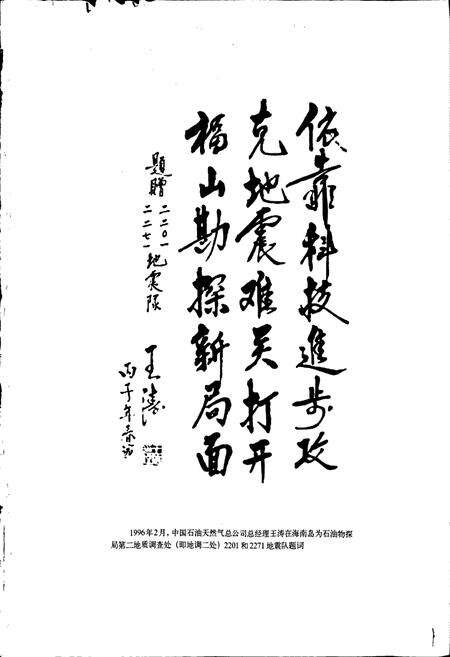 依靠科技進步攻
克地震难关打开
福山勘探新局面
题赠 二二〇一
二二七一 地震队
王涛
丙子年春节
1996年2月，中国石油天然气总公司总经理王涛在海南岛为石油物探
局第二地质调查处（即地调二处）2201和2271地震队题词